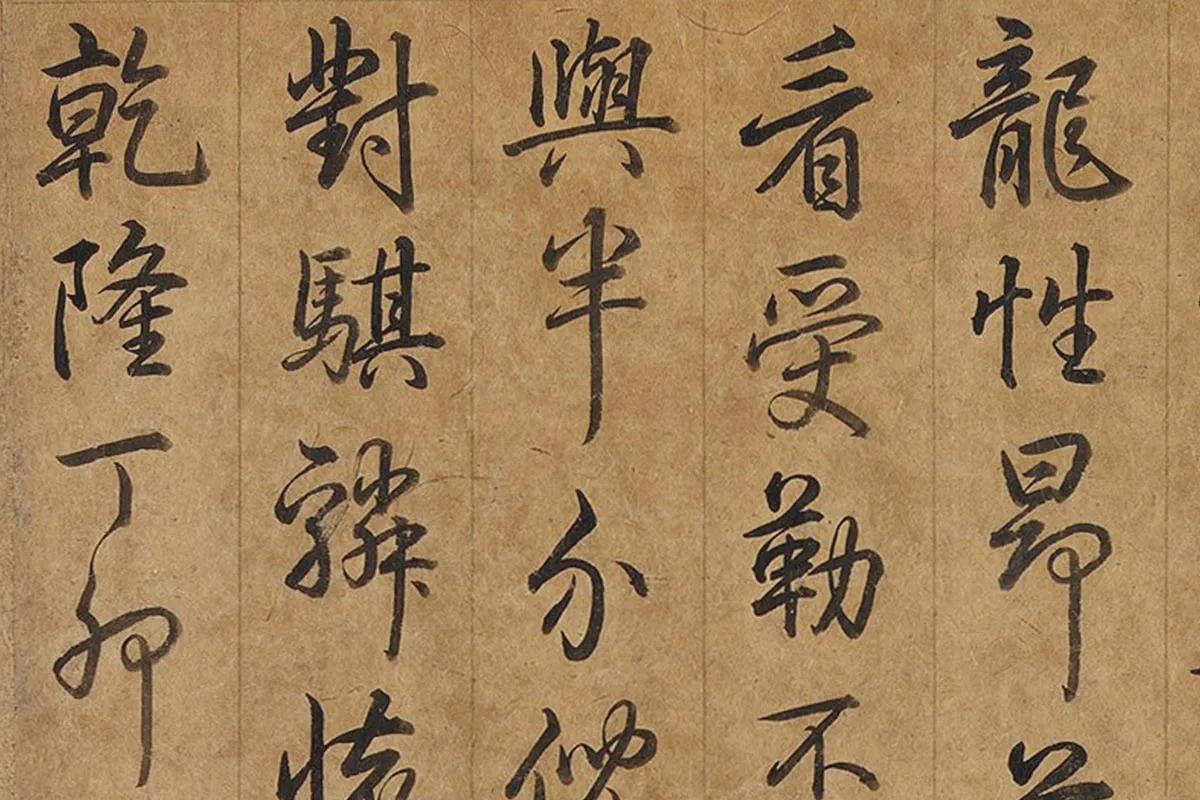 龍性昂
看受勒不
與半分
對騏驎
乾隆丁卯